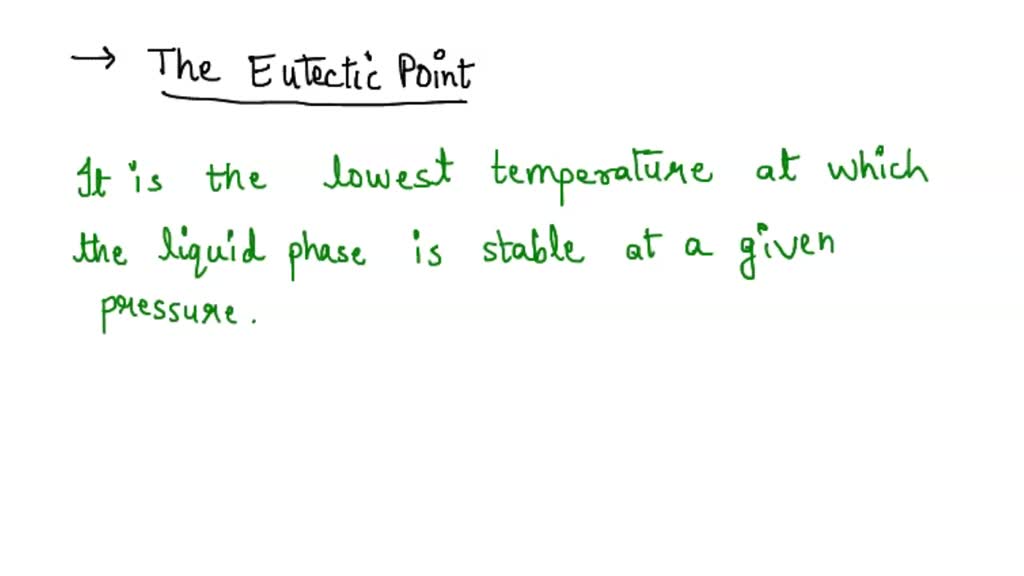 → The Eutectic Point
It is the lowest temperature at which
the liquid phase is stable at a given
pressure.